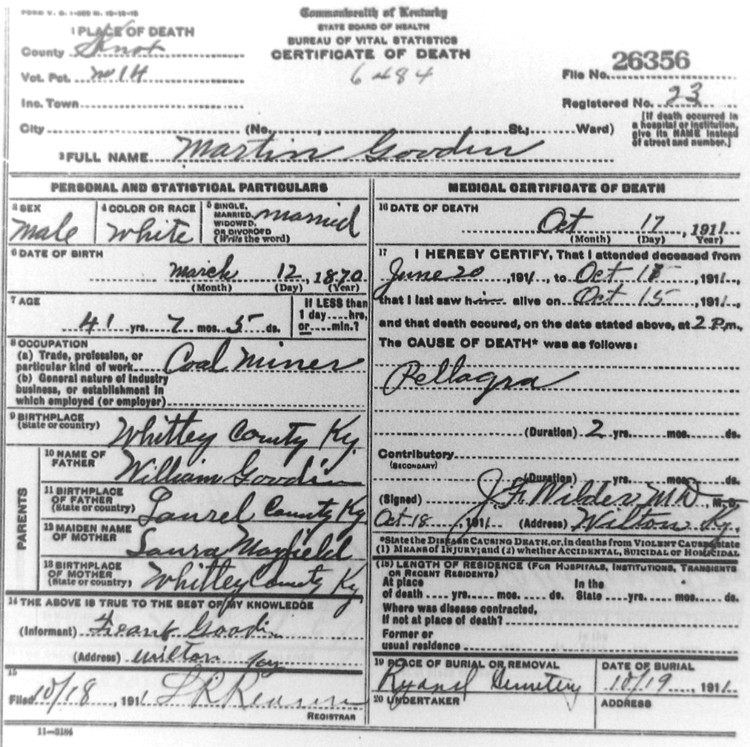 FORM V. S. 1-
Commonwealth of Kentucky
STATE BOARD OF HEALTH
BUREAU OF VITAL STATISTICS
CERTIFICATE OF DEATH
6484
1 PLACE OF DEATH
County Knox
Vot. Pct. No 14
Inc. Town
File No. 26356
Registered No. 23
[If death occurred in
a hospital or institution,
give its NAME instead
of street and number.]
City (No. , St.; Ward)
2 FULL NAME Martin Goodin
PERSONAL AND STATISTICAL PARTICULARS
3 SEX
Male
4 COLOR OR RACE
White
5 SINGLE,
MARRIED,
WIDOWED,
OR DIVORCED
(Write the word)
Married
6 DATE OF BIRTH
March 12, 1870
(Month) (Day) (Year)
7 AGE
41 yrs. 7 mos. 5 ds.
If LESS than
1 day....hrs,
or....min.?
8 OCCUPATION
(a) Trade, profession, or
particular kind of work Coal Miner
(b) General nature of industry
business, or establishment in
which employed (or employer)
9 BIRTHPLACE
(State or country) Whitley County Ky.
PARENTS
10 NAME OF
FATHER William Goodin
11 BIRTHPLACE
OF FATHER
(State or country) Laurel County Ky
12 MAIDEN NAME
OF MOTHER Laura Mayfield
13 BIRTHPLACE
OF MOTHER
(State or country) Whitley County Ky
14 THE ABOVE IS TRUE TO THE BEST OF MY KNOWLEDGE
(Informant) Frank Goodin
(Address) Wilton Ky
15
Filed 10/18, 1911
REGISTRAR
11-3184
MEDICAL CERTIFICATE OF DEATH
16 DATE OF DEATH
Oct 17, 1911
(Month) (Day) (Year)
17 I HEREBY CERTIFY, That I attended deceased from
June 20, 1911, to Oct 15, 1911,
that I last saw him alive on Oct 15, 1911,
and that death occured, on the date stated above, at 2 P.m.
The CAUSE OF DEATH* was as follows:
Pellagra
(Duration) 2 yrs. mos. ds.
Contributory
(SECONDARY)
(Duration) yrs. mos. ds.
(Signed) J. F. Wilder MD, M. D.
Oct 18, 1911 (Address) Wilton Ky.
*State the DISEASE CAUSING DEATH, or, in deaths from VIOLENT CAUSES, state
(1) MEANS OF INJURY; and (2) whether ACCIDENTAL, SUICIDAL or HOMICIDAL
(18) LENGTH OF RESIDENCE (FOR HOSPITALS, INSTITUTIONS, TRANSIENTS
OR RECENT RESIDENTS)
At place In the
of death yrs. mos. ds. State yrs. mos. ds.
Where was disease contracted,
if not at place of death?
Former or
usual residence
19 PLACE OF BURIAL OR REMOVAL
Cemetery
DATE OF BURIAL
10/19, 1911
20 UNDERTAKER
ADDRESS